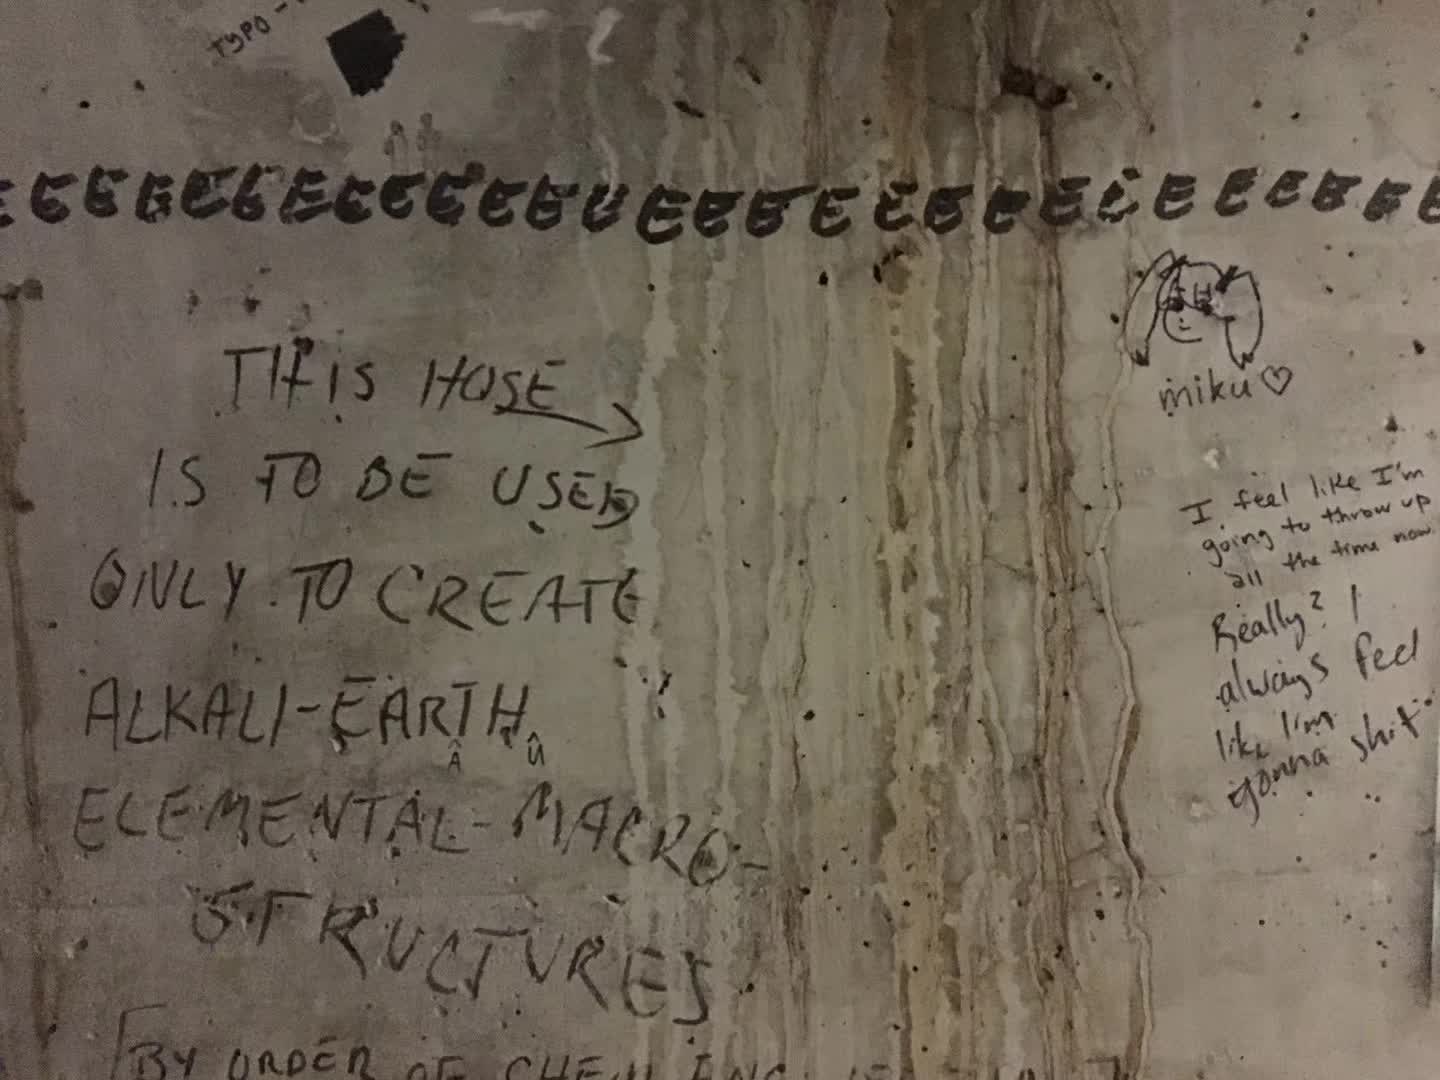 TYPO -
EEEEEEEEEEEEEEEEEEEEEEEEEEEEE
THIS HOSE
IS TO BE USED
ONLY TO CREATE
ALKALI-EARTH
Â Û
ELEMENTAL-MACRO-
STRUCTURES
BY ORDER OF CHEM ENG
miku♡
I feel like I'm
going to throw up
all the time now.
Really? I
always feel
like I'm
gonna shit